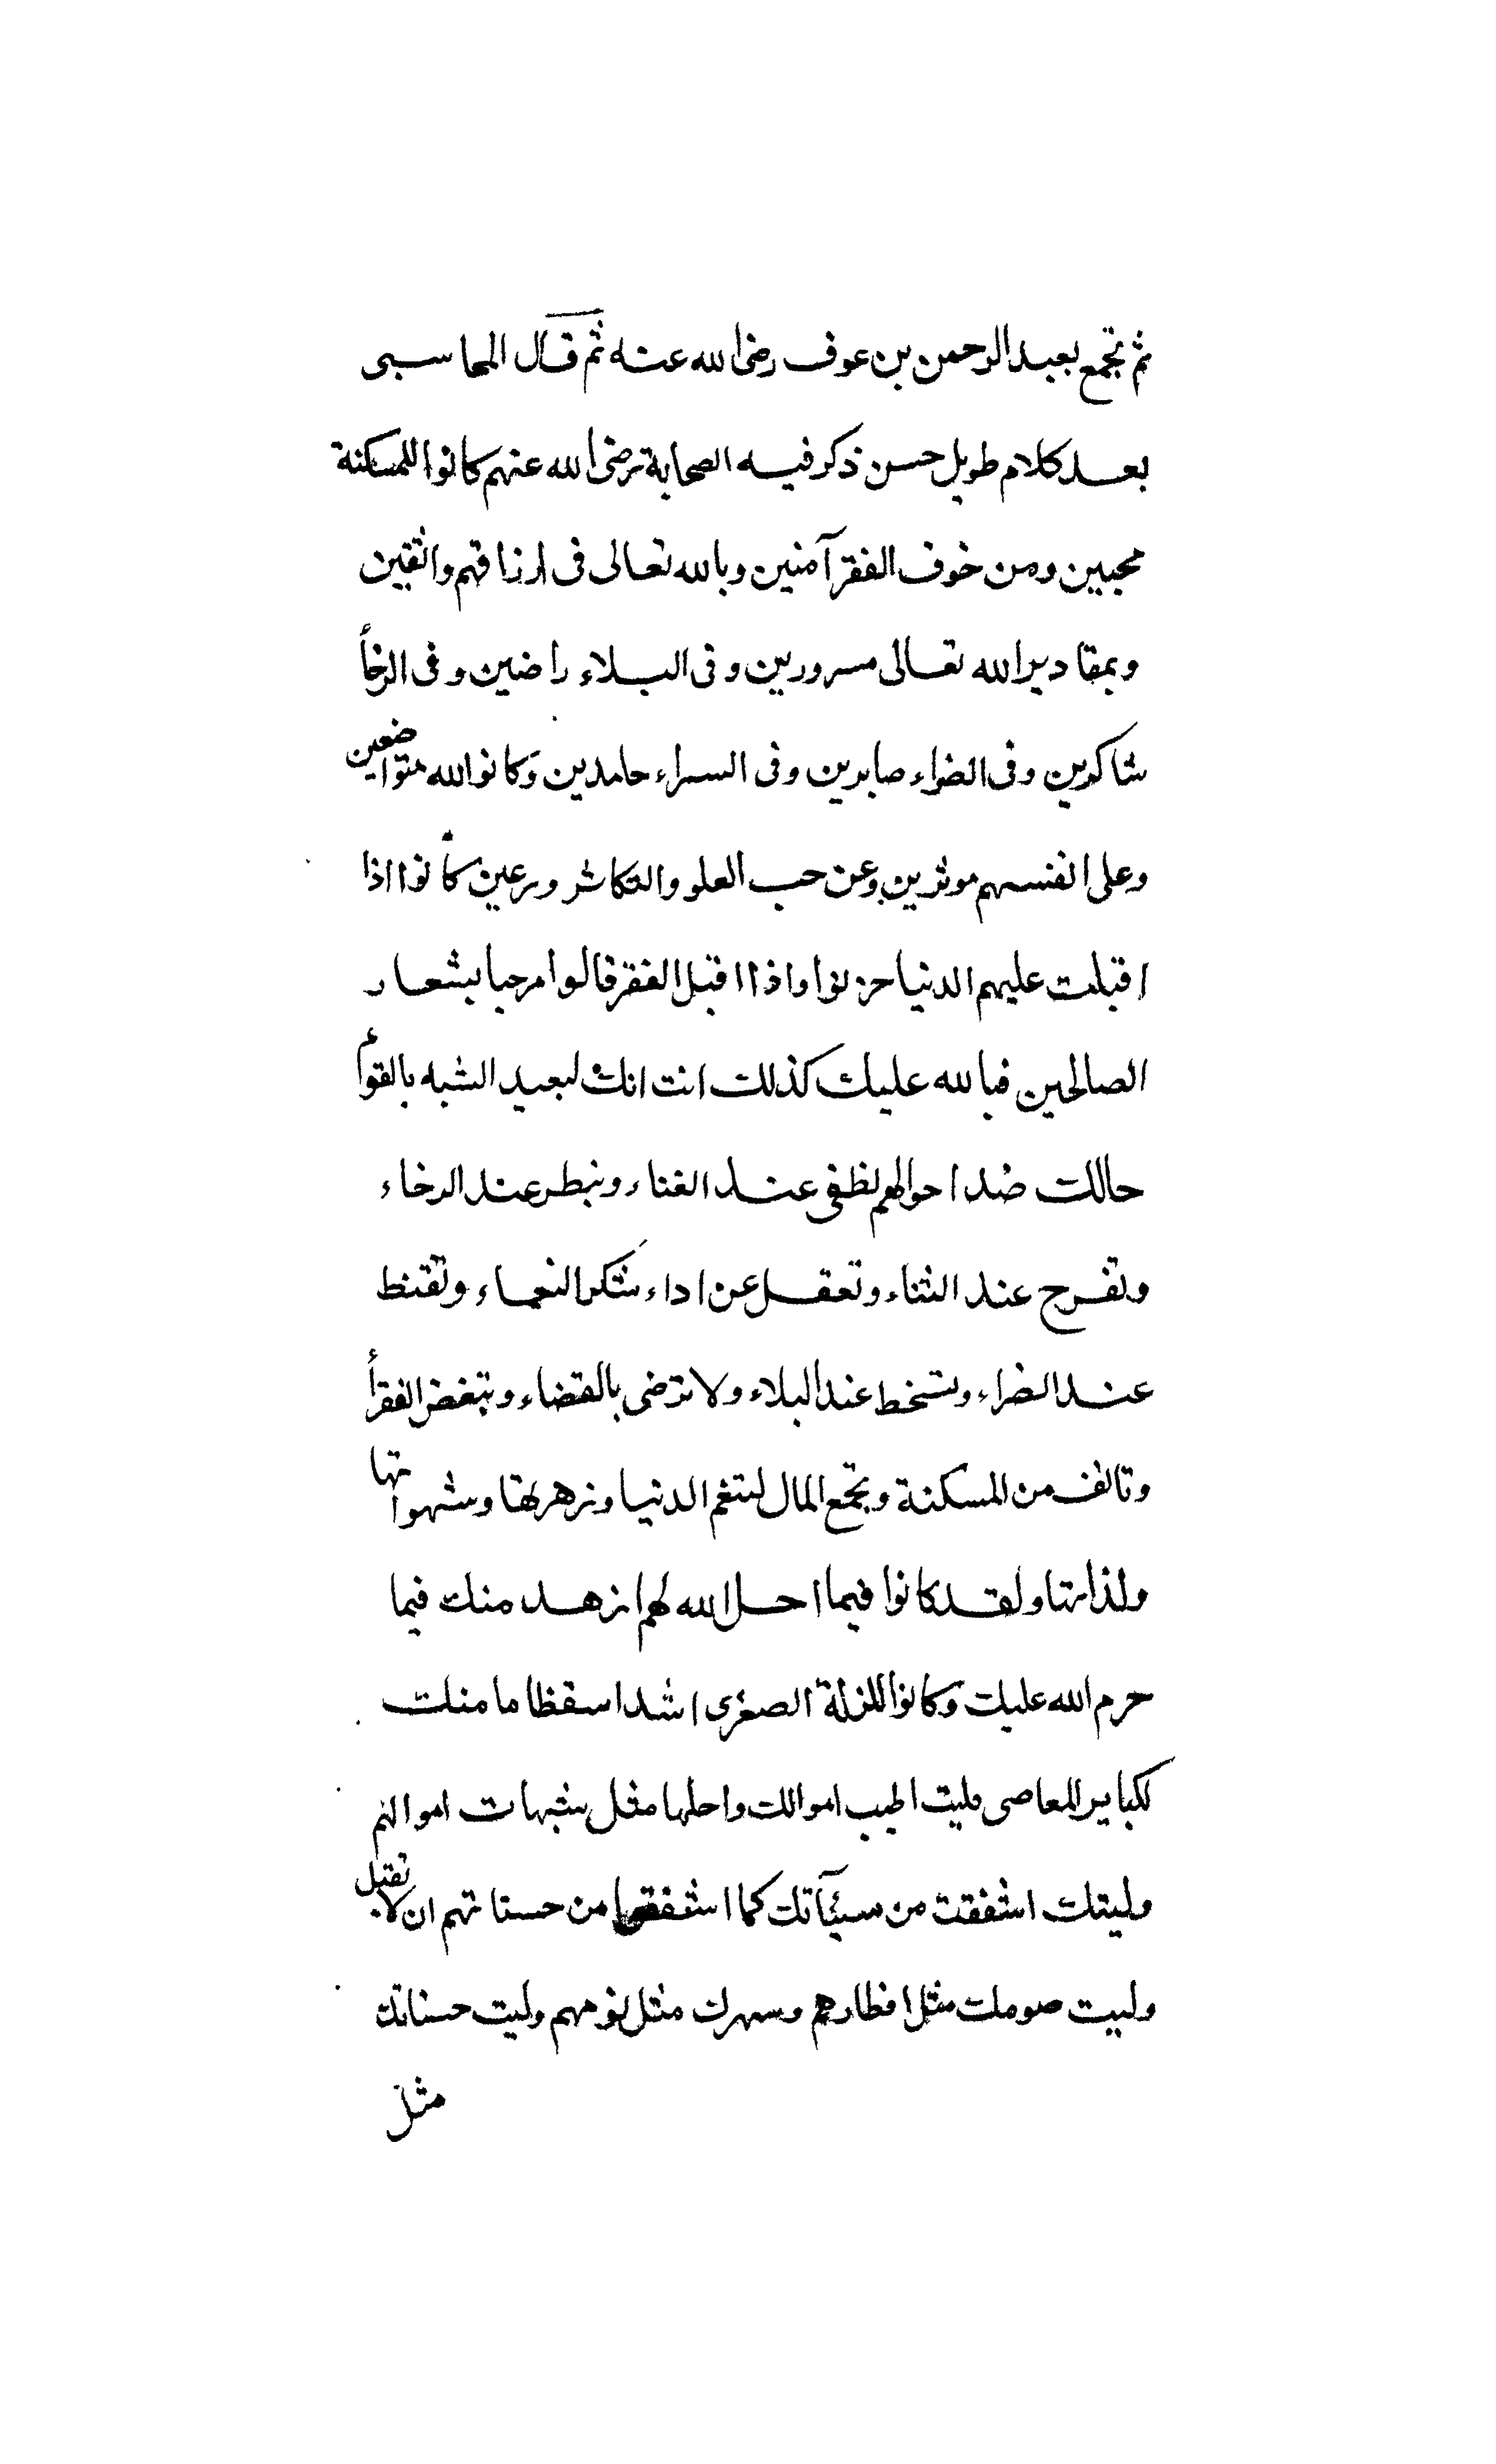 ثم تجمع بعبد الرحمن بن عوف رضى الله عنه ثم قال المحاسبى
بعد كلام طويل حسن ذكر فيه الصحابة رضى الله عنهم كانوا للمسكنة
محبين ومن خوف الفقر آمنين وبالله تعالى فى ارزاقهم واثقين
وبمقادير الله تعالى مسرورين وفى البلاء راضين وفى الرخأ
شاكرين وفى الضراء صابرين وفى السراء حامدين وكانوا لله متواضعين
وعلى انفسهم موثرين وعن حب العلو والتكاثر ورعين كانوا اذا
اقبلت عليهم الدنيا حزنوا واذا اقبل الفقر قالوا مرحبا بشعار
الصالحين فبالله عليك كذلك انت انك لبعيد الشبه بالقوم
حالك ضد احوالهم تطغى عند الغناء وتبطر عند الرخاء
وتفرح عند الثناء وتعقل عن اداء شكر النعماء وتقنط
عند الضراء وتسخط عند البلاء ولا ترضى بالقضاء وتبغض الفقرأ
وتانف من المسكنة وتجمع المال لتنعم الدنيا وزهرتها وشهواتها
ولذاتها ولقد كانوا فيما احل الله لهم ازهد منك فيما
حرم الله عليك وكانوا للزلة الصغرى اشد اسقظاما منك
لكباير المعاصى فليت اطيب اموالك واحلها مثل شبهات اموالهم
وليتك اشفقت من سيئآتك كما اشفقوا من حسناتهم ان لا تقبل
وليت صومك مثل افطارهم وسهرك مثل نومهم وليت حسناتك
مثل